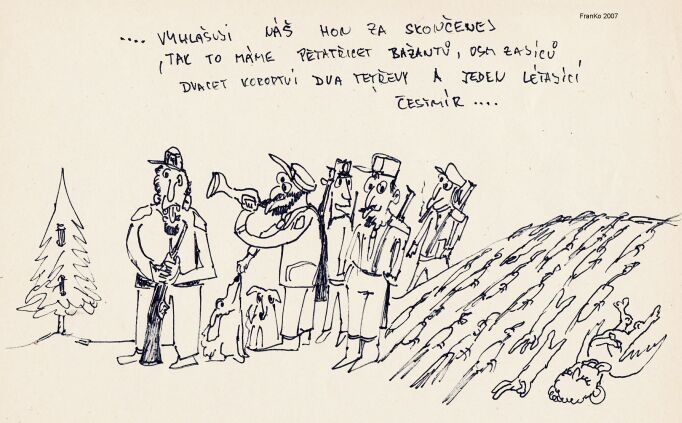 FranKo 2007
.... VYHLAŠUJI NÁŠ HON ZA SKONČENEJ
,TAK TO MÁME PĚTATŘICET BAŽANTŮ, OSM ZAJÍCŮ
DVACET KOROPTVÍ DVA TETŘEVY A JEDEN LÉTAJÍCÍ
ČESTMÍR ....